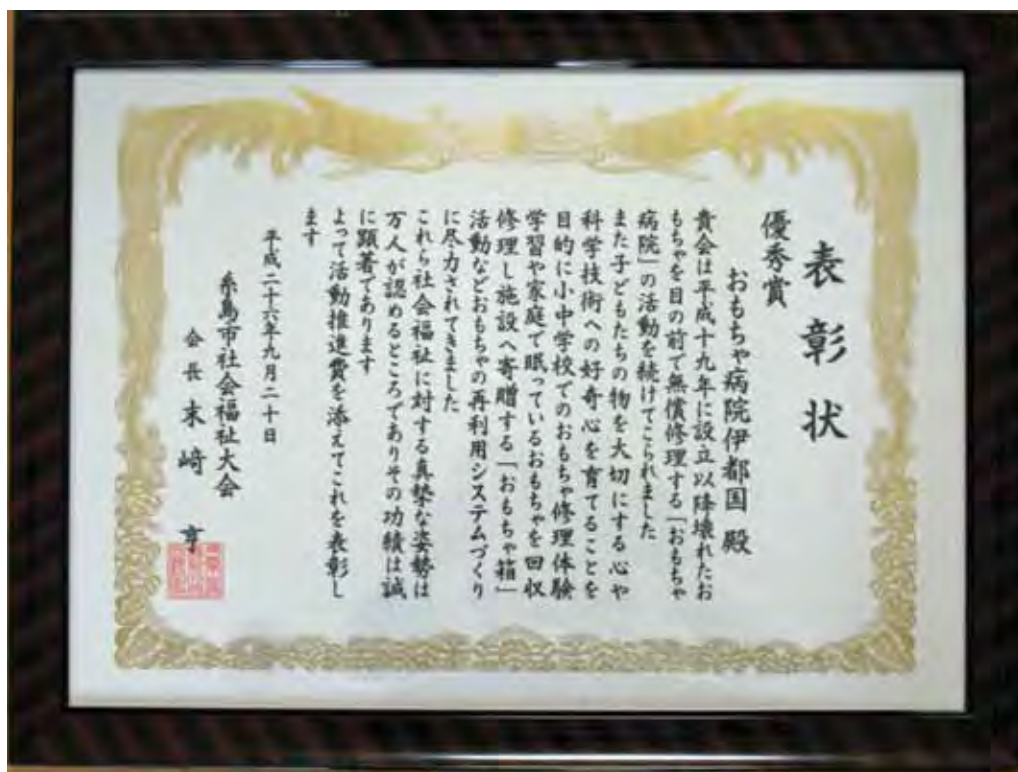 表彰状
優秀賞
おもちゃ病院伊都国 殿
貴会は平成十九年に設立以降壊れたお
もちゃを目の前で無償修理する「おもちゃ
病院」の活動を続けてこられました
また子どもたちの物を大切にする心や
科学技術への好奇心を育てることを
目的に小中学校でのおもちゃ修理体験
学習や家庭で眠っているおもちゃを回収
修理し施設へ寄贈する「おもちゃ箱」
活動などおもちゃの再利用システムづくり
に尽力されてきました
これら社会福祉に対する真摯な姿勢は
万人が認めるところでありその功績は誠
に顕著であります
よって活動推進費を添えてこれを表彰し
ます
平成二十六年九月二十日
糸島市社会福祉大会
会長 末崎 亨